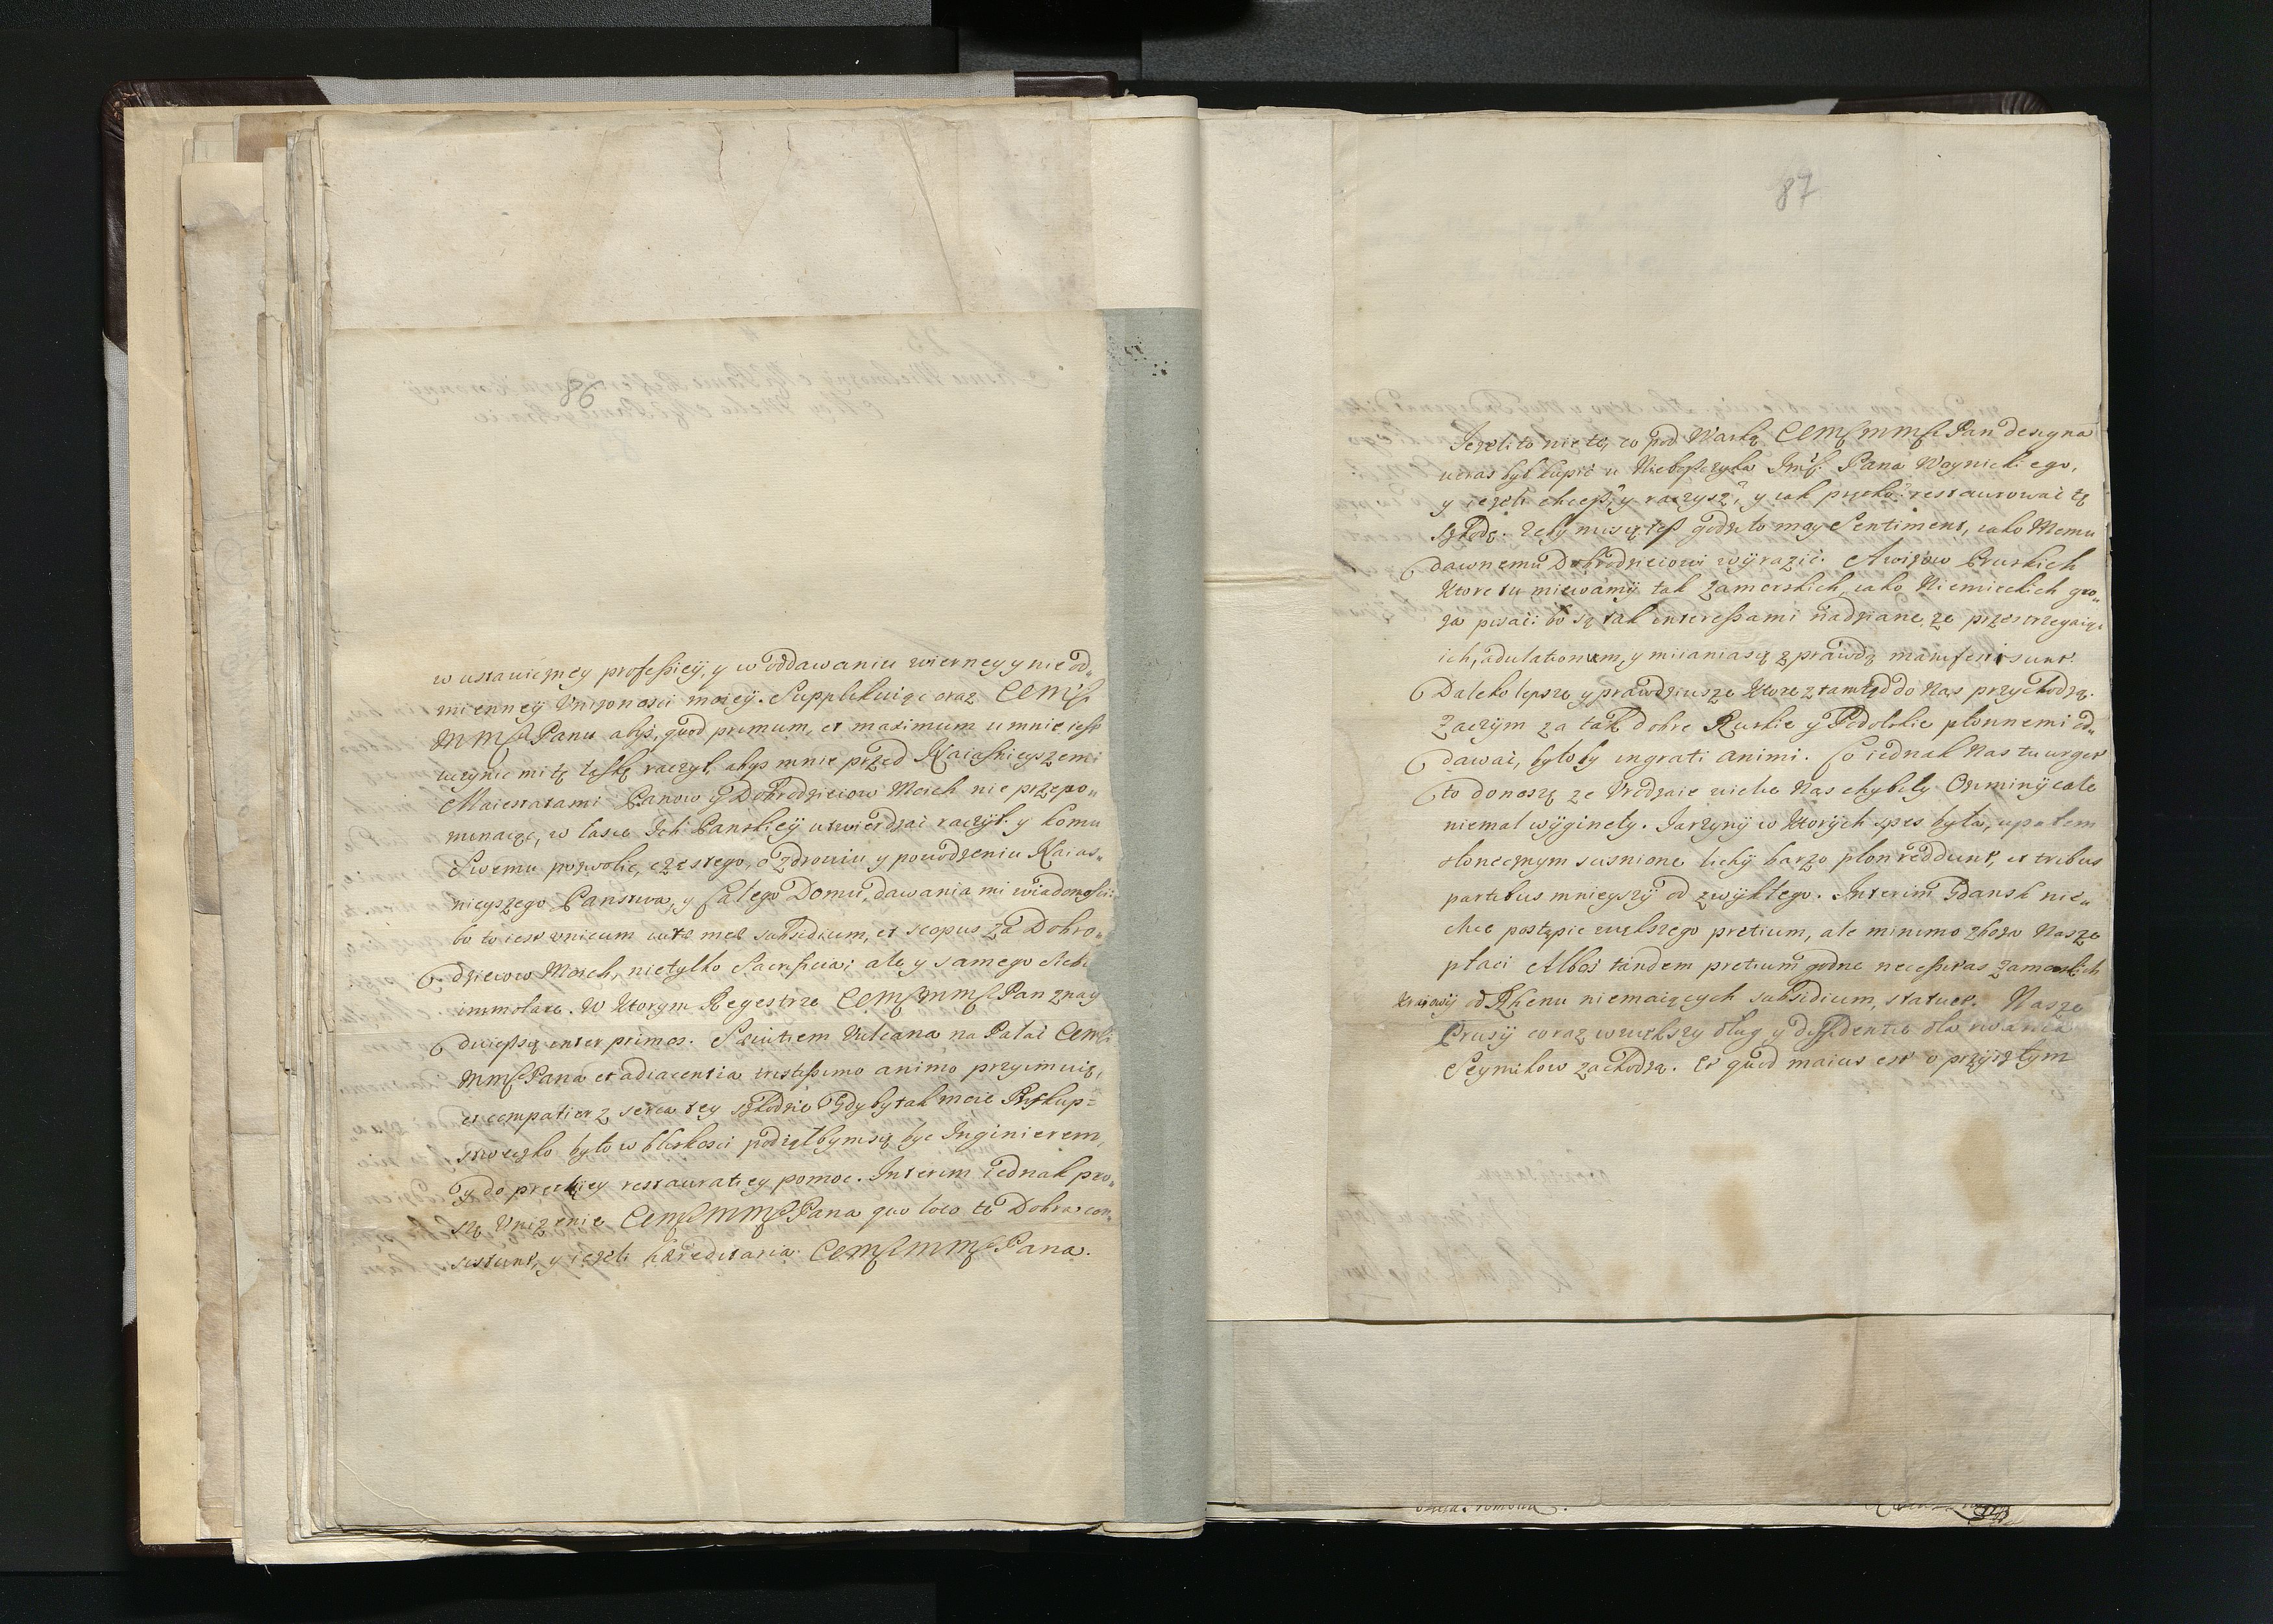 w ustawiczney professiey, y w oddawaniu wierney y nieod„
mienney Unizonosci moiey. Supplikuiąc oraz
Panu abyś, quod primum, et maximum u mnie iest
uczynic mi tę łaskę raczył, abyś mnie przed Naiasnieyszemi
Maiestatami Panow y Dobrodzieiow Moich nie przepo„
minaiąc, w łasce Ich Panskiey utwierdzać raczył. y komu
Swemu pozwolic, częstego, o zdrowiu, y powodzeniu Naias„
nieyszego Panstwa, y Całego Domu, dawania mi wiadomosci
bo to iest unicum vitæ meæ subsidium, et scopus za Dobro„
dzieiow Moich, nietylko Sacrificia; ale y samego siebie
immolare. W Ktorym Regestrze Pan znay
duiesz się inter primos. Sævitiem Vulcana na Pałac
Pana et adiacentia mæstissimo animo przyimuię,
et compatior z serca tey szkodzie Gdyby tak moie Biskup=
stwo było w bliskosci podiąłbym się byc Inginierem,
y do prętkiey restauratiey pomoc. Interim iednak pro„
szę Unizenie Pana quo loco te Dobra con„
sistunt, y iezeli hæreditaria Pana.
87
Iezeli to nie tę, co pod Warką Pan designa
wasz był kupić u Nieboszczyka Pana Woynickiego,
y iezeli chcesz, y raczysz, y iak prętko restaurować tę
szkodę. Zeby
dawnemu Dobrodzieiowi wyrazić. Awizow Pruskich
Ktore tu miewamy tak Zamorskich, iako Niemieckich
pisać: bo są tak interessami nadziane, ze przestrzegaiąc
ich, adulationem, y miianiasię z prawdą manifesti sunt.
Daleko lepsze y prawdziwsze Ktore z tamtąd do Nas przychodzą.
Zaczym za tak dobre Ruskie y Podolskie płonnemi od„
dawać, byłoby ingrati animi. Co iednak Nas tu urget
to donoszę ze Urodzaie wielce Nas chybiły Oziminy cale
niemal wyginely. Iarzyny w Ktorych spes była, upałem
słonecznym suszone lichy barzo plon reddunt, et tribus
partibus mnieyszy od zwykłego. Interim Gdansk nie„
chce postąpic większego pretium, ale minimo zboza Nasze
płaci Alboż tandem pretium godne necessitas Zamorskich
Kraiow od Rhenu niemaiących subsidium, statuet. Nasze
Prusy coraz w większy dług y diffidentie dla rwania
Seymikow zachodzą. Et quod maius est o przyszłym